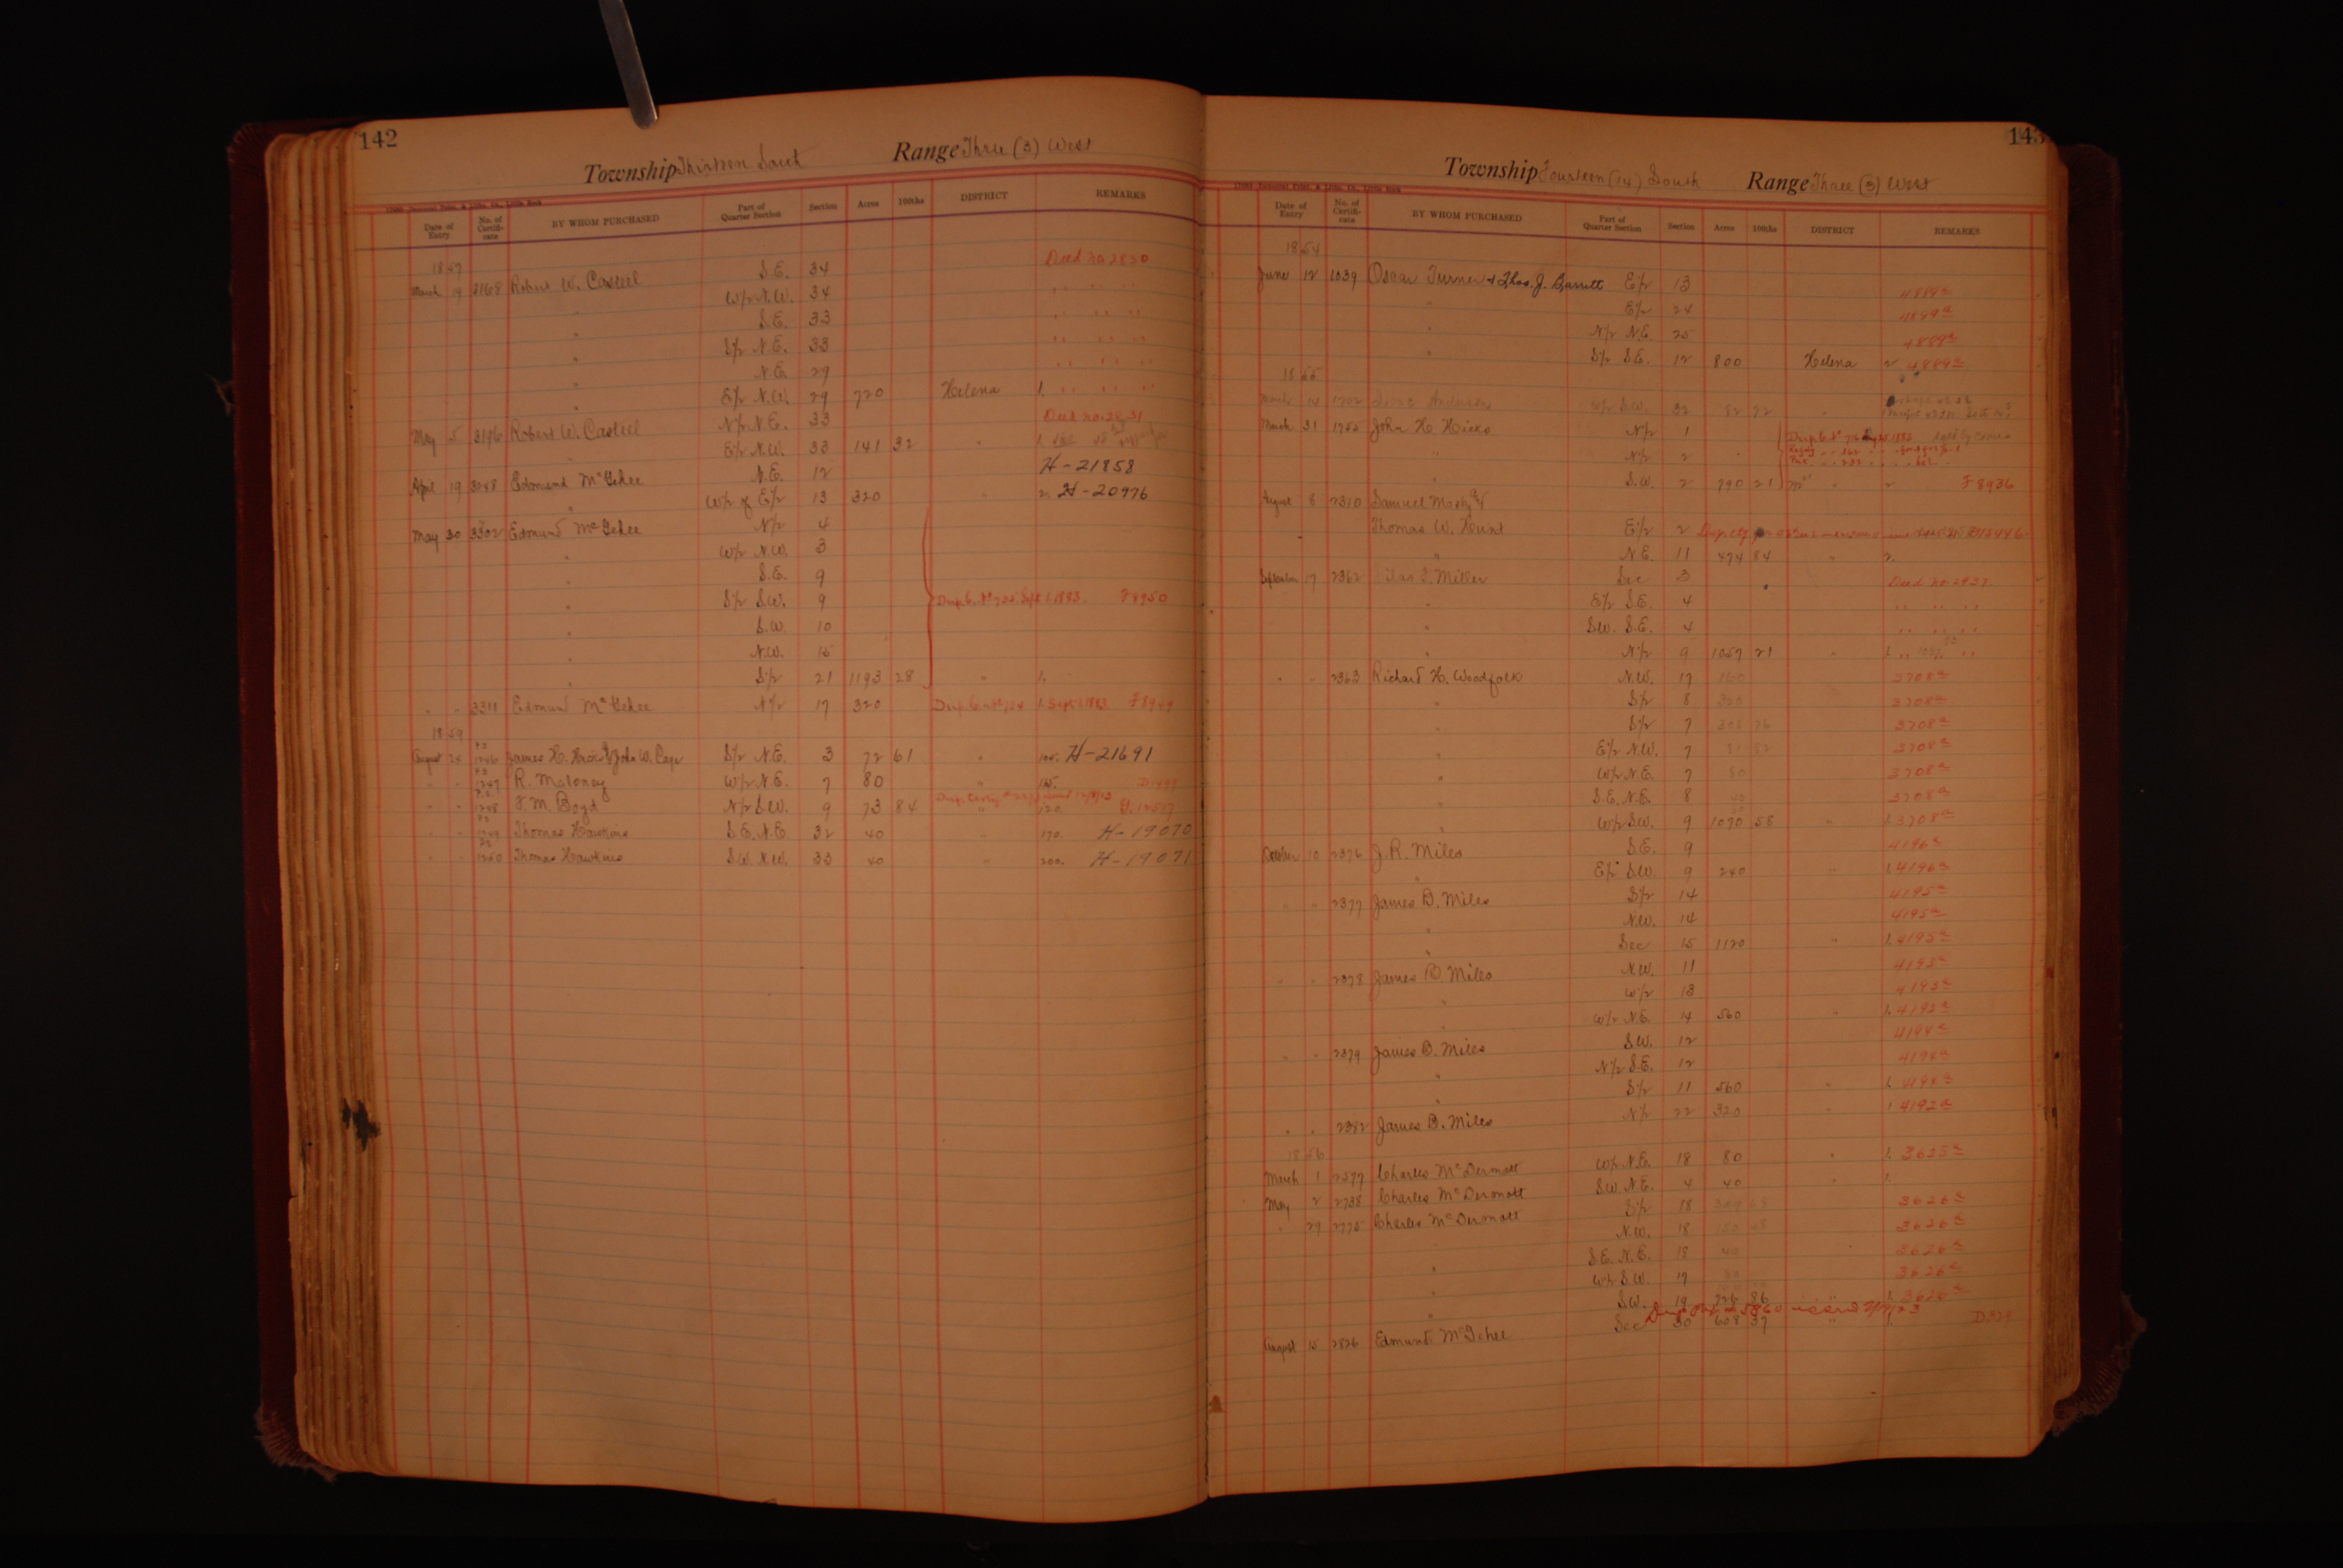 142
Township Thirteen South Range Three (3) West
Date of Entry No. of Certifi-cate BY WHOM PURCHASED Part of Quarter Section Section Acres 100ths DISTRICT REMARKS
1857
March 19 3168 Robert W. Casteel S.E. 34 Deed No. 2830
" W/2 N.W. 34 " " "
" S.E. 33 " " "
" S/2 N.E. 33 " " "
" N.E. 29 " " "
" E/2 N.W. 29 720 Helena 1. " " "
May 5 3196 Robert W. Casteel N/2 N.E. 33 Deed No. 2831
" E/2 N.W. 33 141 32 " 1.
April 19 3248 Edmund McGehee N.E. 12 H-21858
" W/2 of E/2 13 320 " 2. H-20976
May 30 3302 Edmund McGehee N/2 4
" W/2 N.W. 3
" S.E. 9
" S/2 S.W. 9 Dup. C. No 725 Sept 1. 1883. F8950
" S.W. 10
" N.W. 15
" S/2 21 1193 28 " 1.
" " 3311 Edmund McGehee N/2 17 320 Dup. C. No 724 1. Sept 1. 1883 F8949
1859
August 24 1246 James H. & John W. S/2 N.E. 3 72 61 " 100. H-21691
" " 1247 R. Maloney W/2 N.E. 7 80 " 115.
" " 1248 F. M. Boyd N/2 S.W. 9 73 84 " 120. G. 12517
" " 1249 Thomas Hawkins S.E. N.E. 32 40 " 170. H-19070
" " 1250 Thomas Hawkins S.W. N.W. 33 40 " 200. H-19071
143
Township Fourteen (14) South Range Three (3) West
Date of Entry No. of Certifi-cate BY WHOM PURCHASED Part of Quarter Section Section Acres 100ths DISTRICT REMARKS
1854
June 12 1039 Oscar Turner & Thos. J. Barrett E/2 13 4889a
" E/2 24 4889a
" N/2 N.E. 25 4889a
" S/2 S.E. 12 800 Helena 2 4889a
1855
March 14 1702 W/2 S.W. 32 82 72 "
March 31 1755 John H. Hicks N/2 1
" N/2 2 "
" S.W. 2 790 21 " 2 F8936
August 8 2310 Samuel Mosby &
Thomas W. Hunt E/2 2
" N.E. 11 474 84 " 2.
September 17 2362 Silas S. Miller Sec 3 Deed No. 2832
" E/2 S.E. 4 " " "
" S.W. S.E. 4 " " "
" N/2 9 1057 21 " 1. " "
" " 2363 Richard H. Woodfolk N.W. 17 160 3708a
" S/2 8 320 3708a
" S/2 7 308 76 3708a
" E/2 N.W. 7 81 82 3708a
" W/2 N.E. 7 80 3708a
" S.E. N.E. 8 40 3708a
" W/2 S.W. 9 1070 58 " 1. 3708a
October 10 2376 J. R. Miles S.E. 9 4196a
" E/2 S.W. 9 240 " 1. 4196a
" " 2377 James B. Miles S/2 14 4195a
" N.W. 14 4195a
" Sec 15 1120 " 1. 4195a
" " 2378 James B. Miles N.W. 11 4193a
" W/2 13 4193a
" W/2 N.E. 14 560 " 1. 4193a
" " 2379 James B. Miles S.W. 12 4194a
" N/2 S.E. 12 4194a
" S/2 11 560 " 1. 4194a
" " 2382 James B. Miles N/2 22 320 " 1 4192a
1856
March 1 2577 Charles McDermott W/2 N.E. 18 80 " 1. 3625a
May 2 2738 Charles McDermott S.W. N.E. 4 40 " 1.
" 29 2775 Charles McDermott S/2 18 3626a
" N.W. 18 3626a
" S.E. N.E. 18 40 3626a
" W/2 S.W. 17 80 3626a
" S.W. 19 726 86 " 1. 3626a
August 15 2826 Edmund McGehee Sec 30 608 37 " 1. D329